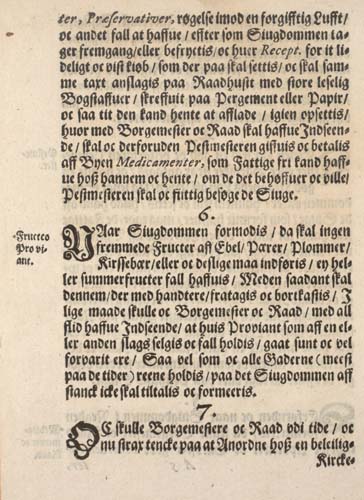 ter, Præservativer, røgelse imod en forgifftig Lufft/
oc andet fall at haffue/ effter som Siugdommen ta-
ger fremgang/ eller befryctis/ oc huer Recept. for it li-
deligt oc vist kiøb/ som der paa skal settis/ oc skal sam-
me taxt anslagis paa Raadhust med store leselig
Bogstaffuer/ skreffuit paa Pergement eller Papir/
oc saa tit den kand hente at afflade/ igien opsettis/
huor med Borgemester oc Raad skal haffue Indseen-
de/ skal oc derforuden Pestmesteren giffuis oc betalis
aff Byen Medicamenter, som Fattige fri kand haff-
ue hoß hannem oc hente/ om de det behøffuer oc ville/
Pestmesteren skal oc flittig besøge de Siuge.
6.
NAar Siugdommen formodis/ da skal ingen
fremmede Fructer aff Ebel/ Pærer/ Plommer/
Kirssebær/ eller oc deslige maa indføris/ ey hel-
ler summerfructer fall haffuis/ Meden saadant skal
dennem/ der med handtere/ fratagis oc bortkastis/ I
lige maade skulle oc Borgemester oc Raad/ med all
flid haffue Indseende/ at huis Proviant som aff en el-
ler anden slags selgis oc fall holdis/ gaat sunt oc vel
forvarit ere/ Saa vel som oc alle Gaderne (meest
paa de tider) reene holdis/ paa det Siugdommen aff
stanck icke skal tiltalis oc formeeris.
Fructer oc
Provi
ant.
7.
OC skulle Borgemestere oc Raad vdi tide/ oc
nu strax tencke paa at Anordne hoß en beleilig-
Kircke-